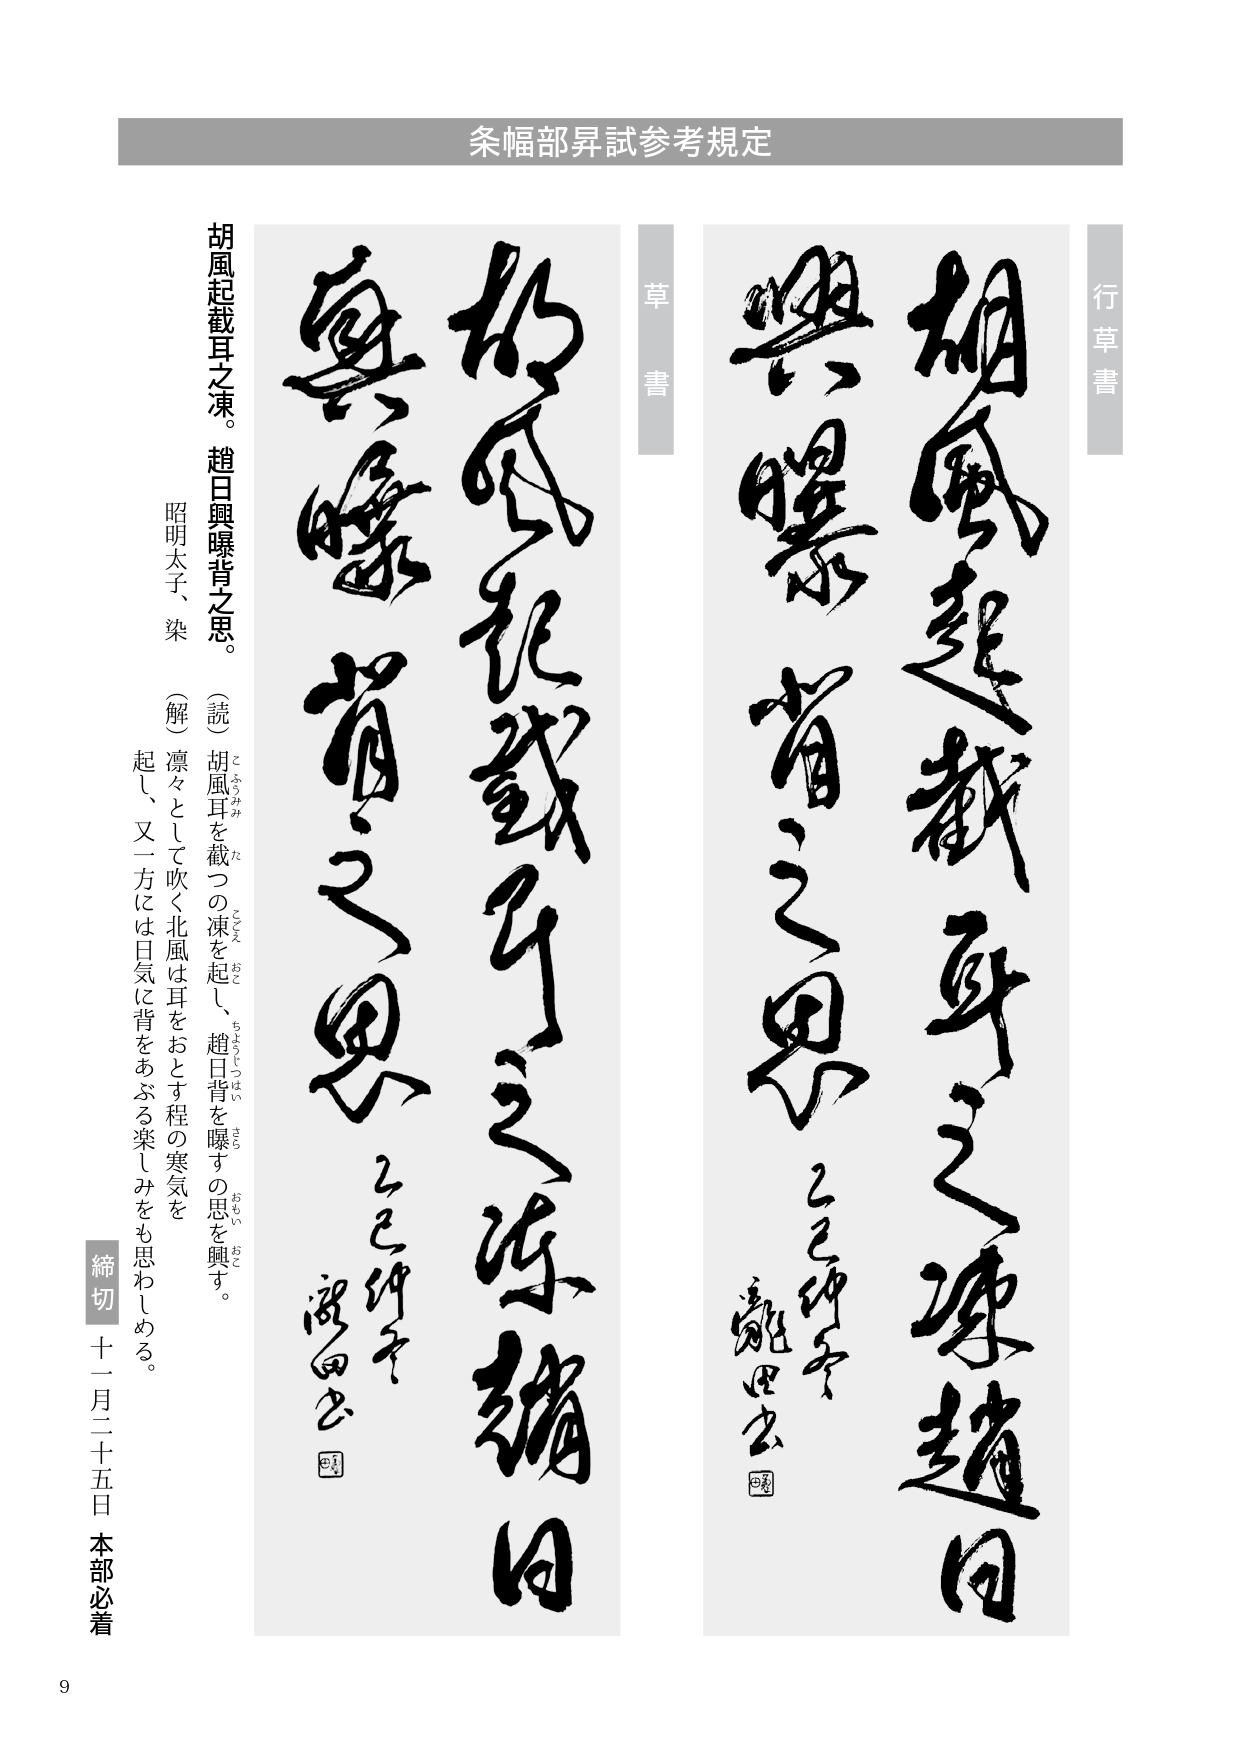 条幅部昇試参考規定
行草書
胡風起截耳之凍趙日
興曝背之思
乙巳仲冬
瀧田書
草書
胡風起截耳之凍趙日
興曝背之思
乙巳仲冬
瀧田書
胡風起截耳之凍。趙日興曝背之思。
昭明太子、染
（読）胡風耳を截つの凍を起し、趙日背を曝すの思を興す。
こふうみみ た こごえ おこ ちょうじつはい さら おもい おこ
（解）凛々として吹く北風は耳をおとす程の寒気を
起し、又一方には日気に背をあぶる楽しみをも思わしめる。
締切 十一月二十五日 本部必着
9